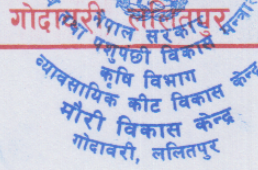 गोदावरी, ललितपुर
नेपाल सरकार
पशुपंछी विकास मन्त्रा
कृषि विभाग
व्यावसायिक कीट विकास केन्द्र
मौरी विकास केन्द्र
गोदावरी, ललितपुर